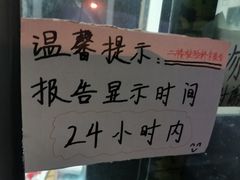 温馨提示:
报告显示时间
24小时内